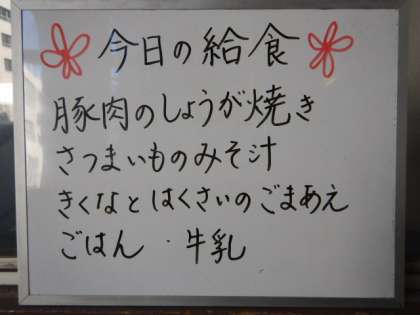 今日の給食
豚肉のしょうが焼き
さつまいものみそ汁
きくなとはくさいのごまあえ
ごはん ・ 牛乳